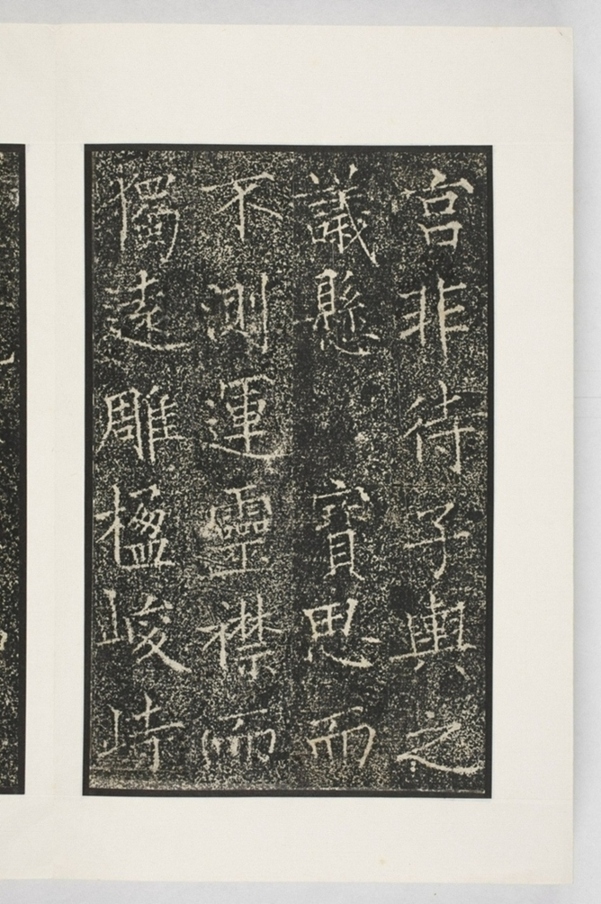 宫非待子輿之
議懸寶思而
不測運靈襟而
獨遠雕楹峻峙